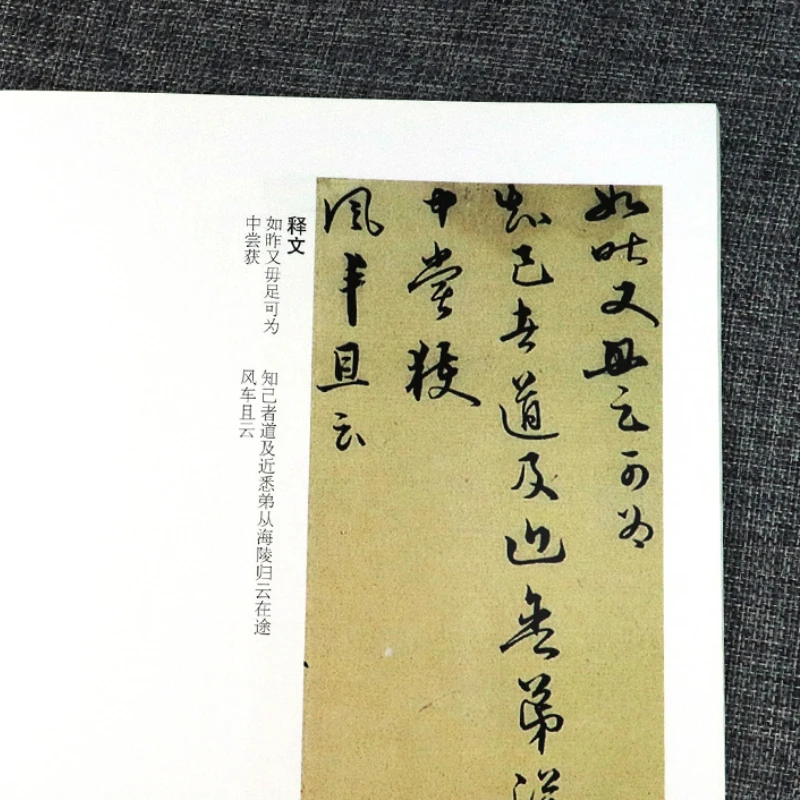 如昨又毋足可為
知己者道及近悉弟從
中嘗獲
風車且云
释文
如昨又毋足可为 知己者道及近悉弟从海陵归云在途
中尝获 风车且云